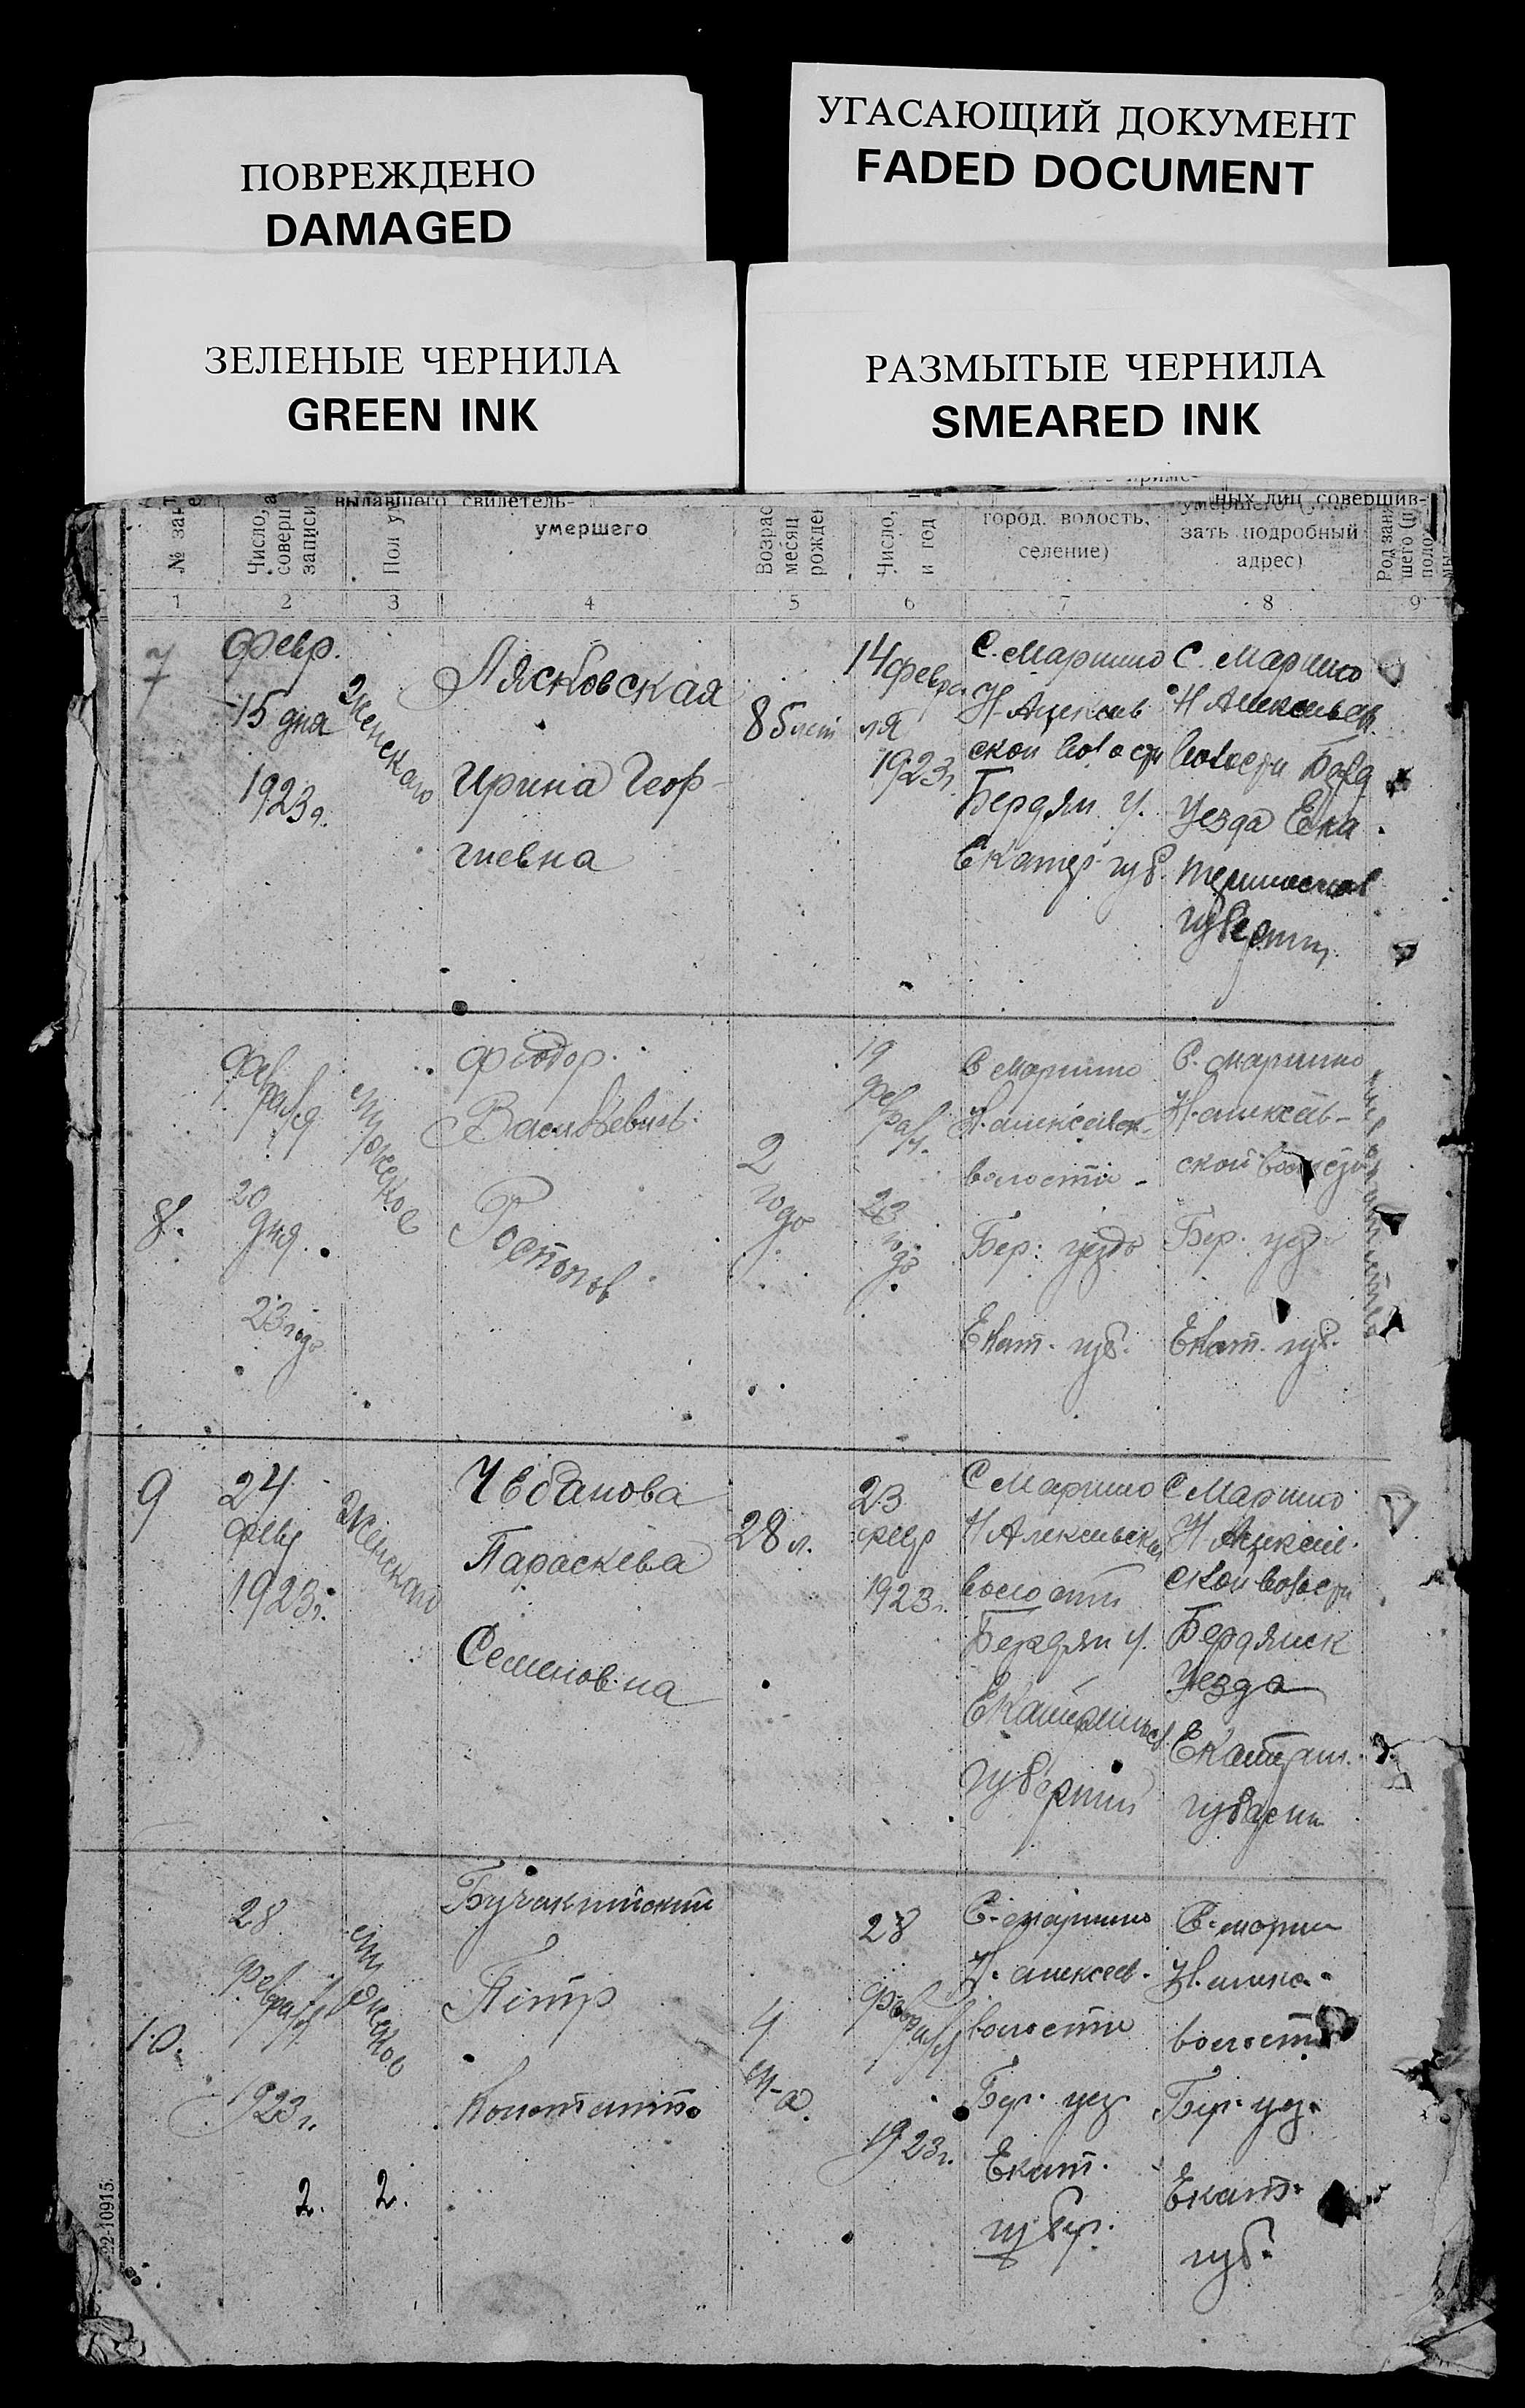 ПОВРЕЖДЕНО
DAMAGED
УГАСАЮЩИЙ ДОКУМЕНТ
FADED DOCUMENT
ЗЕЛЕНЫЕ ЧЕРНИЛА
GREEN INK
РАЗМЫТЫЕ ЧЕРНИЛА
SMEARED INK
выдавшего свидетель-
ных лиц совершив-
№ за
Число,
соверш
записи
Пол у
умершего
Возрас
месяц
рожден
Число,
и год
город, волость,
селение)
умершего
зать подробный
адрес)
Род зан
шего (
поло
1 2 3 4 5 6 7 8 9
7
Февр.
15 дня
1923 г.
Женскаго
Лясковская
Ирина Геор-
гиевна
85 лет
14 февра
ля
1923 г.
С. Марино
Н-Алексеев
ской волости
Бердян у.
Екатер губ.
С. Марино
Н Алексеев
волости
Уезда Ека
теринослав
губернии
8.
Февраля
20
дня
23 года
Мужское
Фиодор
Васильевич
Ростопов
2
года
19
февраля
23
года
С Марино
Н. алексеевск
волости
Бер. уезда
Екат. губ.
С. марино
Н. алексеев-
ской волости
Бер. уезда
Екат. губ.
9
24
февр
1923 г.
Женскаго
Чебанова
Параскева
Семеновна
28 л.
23
февр
1923 г.
С Марино
Н Алексеевской
волости
Бердян у.
Екатеринос
губернии
С Марино
Н Алексеев
ской волости
Бердянск
Уезда
губерни
10.
28
февраля
1923 г.
Мужское
Петр
Константин
4
м-а.
28
февраля
1923 г.
С. марино
Н. алексеев.
волости
Бер. уез.
Екат.
губер.
С. марин
Н. алекс.
волости
Бер. уез.
Екат.
губ.
2. 2.
22-10915.